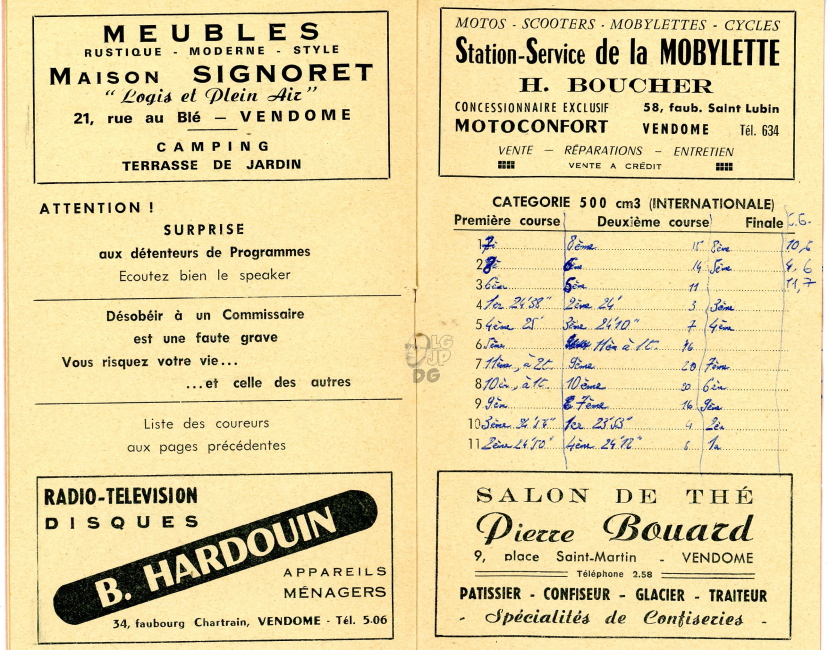 MEUBLES
RUSTIQUE - MODERNE - STYLE
MAISON SIGNORET
"Logis et Plein Air"
21, rue au Blé — VENDOME
CAMPING
TERRASSE DE JARDIN
ATTENTION !
SURPRISE
aux détenteurs de Programmes
Ecoutez bien le speaker
Désobéir à un Commissaire
est une faute grave
Vous risquez votre vie...
...et celle des autres
Liste des coureurs
aux pages précédentes
RADIO-TELEVISION
DISQUES
B. HARDOUIN
APPAREILS
MÉNAGERS
34, faubourg Chartrain, VENDOME - Tél. 5.06
MOTOS - SCOOTERS - MOBYLETTES - CYCLES
Station-Service de la MOBYLETTE
H. BOUCHER
CONCESSIONNAIRE EXCLUSIF 58, faub. Saint Lubin
MOTOCONFORT VENDOME Tél. 634
VENTE — RÉPARATIONS — ENTRETIEN
VENTE A CRÉDIT
CATEGORIE 500 cm3 (INTERNATIONALE)
Première course Deuxième course Finale
1 8ème 15 8ème
2 14 5ème
3 6èm 5èm 11 11,7
4 1er 24'58" 2ème 24' 3 3ème
5 4ème 25' 3ème 24'10" 7 4ème
6 5ème 11èm à 1t. 16
7 11èm, à 2t. 9ème 20 7ème
8 10èm, à 1t. 10ème 20 6èm
9 9èm 7ème 16 9èm
10 3ème 1er 23'53" 4 2èm
11 2ème 24'50" 4ème 24'12" 6 1er
LG
JP
DG
SALON DE THÉ
Pierre Bouard
9, place Saint-Martin - VENDOME
Téléphone 2.58
PATISSIER - CONFISEUR - GLACIER - TRAITEUR
- Spécialités de Confiseries -